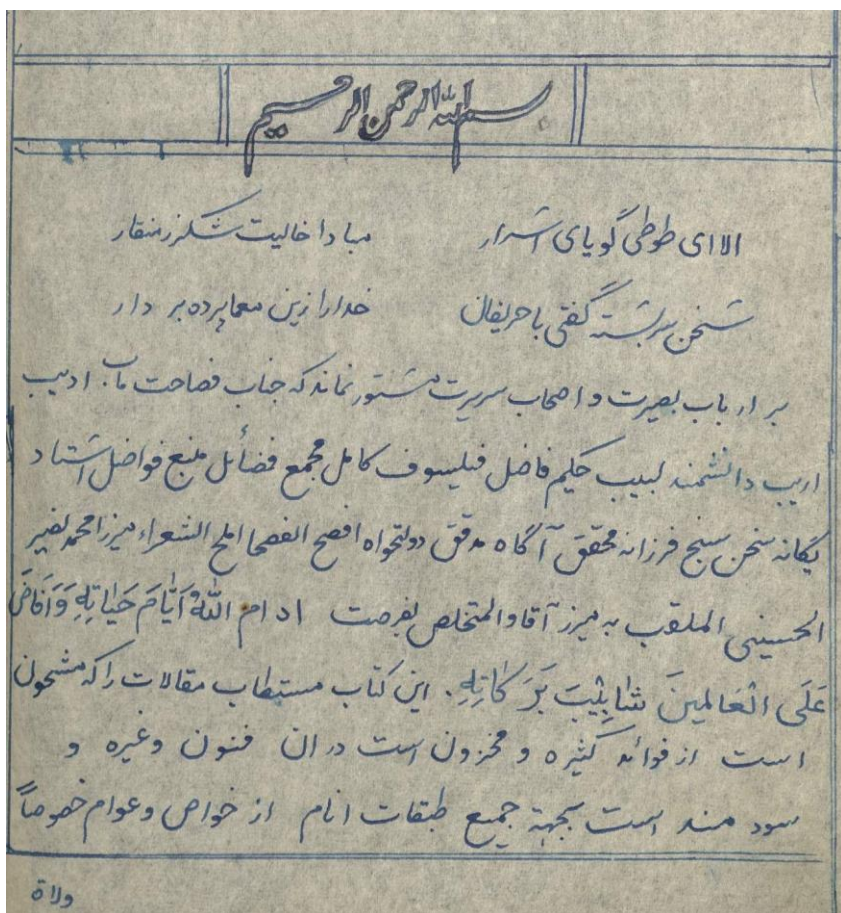 بسم الله الرحمن الرحیم
الا ای طوطی گویای اسرار مبادا خالیت شکر ز منقار
سخن سربسته گفتی با حریفان خدا را زین معما پرده بر دار
بر ارباب بصیرت و اصحاب سریرت مستور نماند که جناب فصاحت مآب ادیب
اریب دانشمند لبیب حکیم فاضل فیلسوف کامل مجمع فضائل منبع فواضل استاد
یگانه سخن سنج فرزانه محقق آگاه مدقق دولتخواه افصح الفصحا املح الشعراء میرزا محمد نصیر
الحسینی الملقب به میرزا آقا والمتخلص بفرصت ادام اللهُ اَیّٰامَ حَیٰاتِهِ وَ اَفَاضَ
عَلَی الْعٰالَمینَ شَآبیٖبَ بَرَکٰاتِهِ. این کتاب مستطاب مقالات را که مشحون
است از فوائد کثیره و مخزون است در ان فنون وغیره و
سود مند است بجهة جمیع طبقات انام از خواص و عوام خصوصاً
ولاة